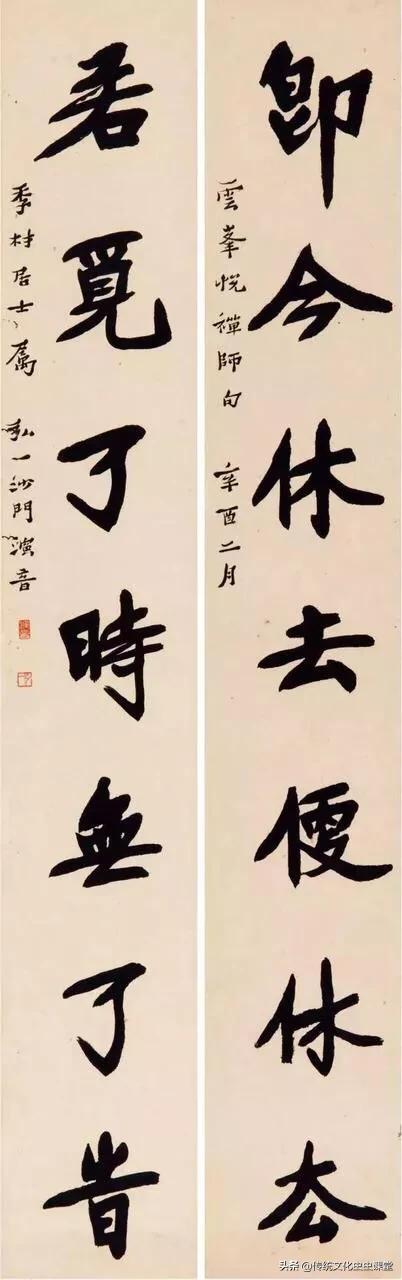 卽今休去便休厺
雲峯悅禪師句 辛酉二月
若覓了時無了旹
季材居士属 弘一沙門演音
头条 @传统文化虫虫课堂